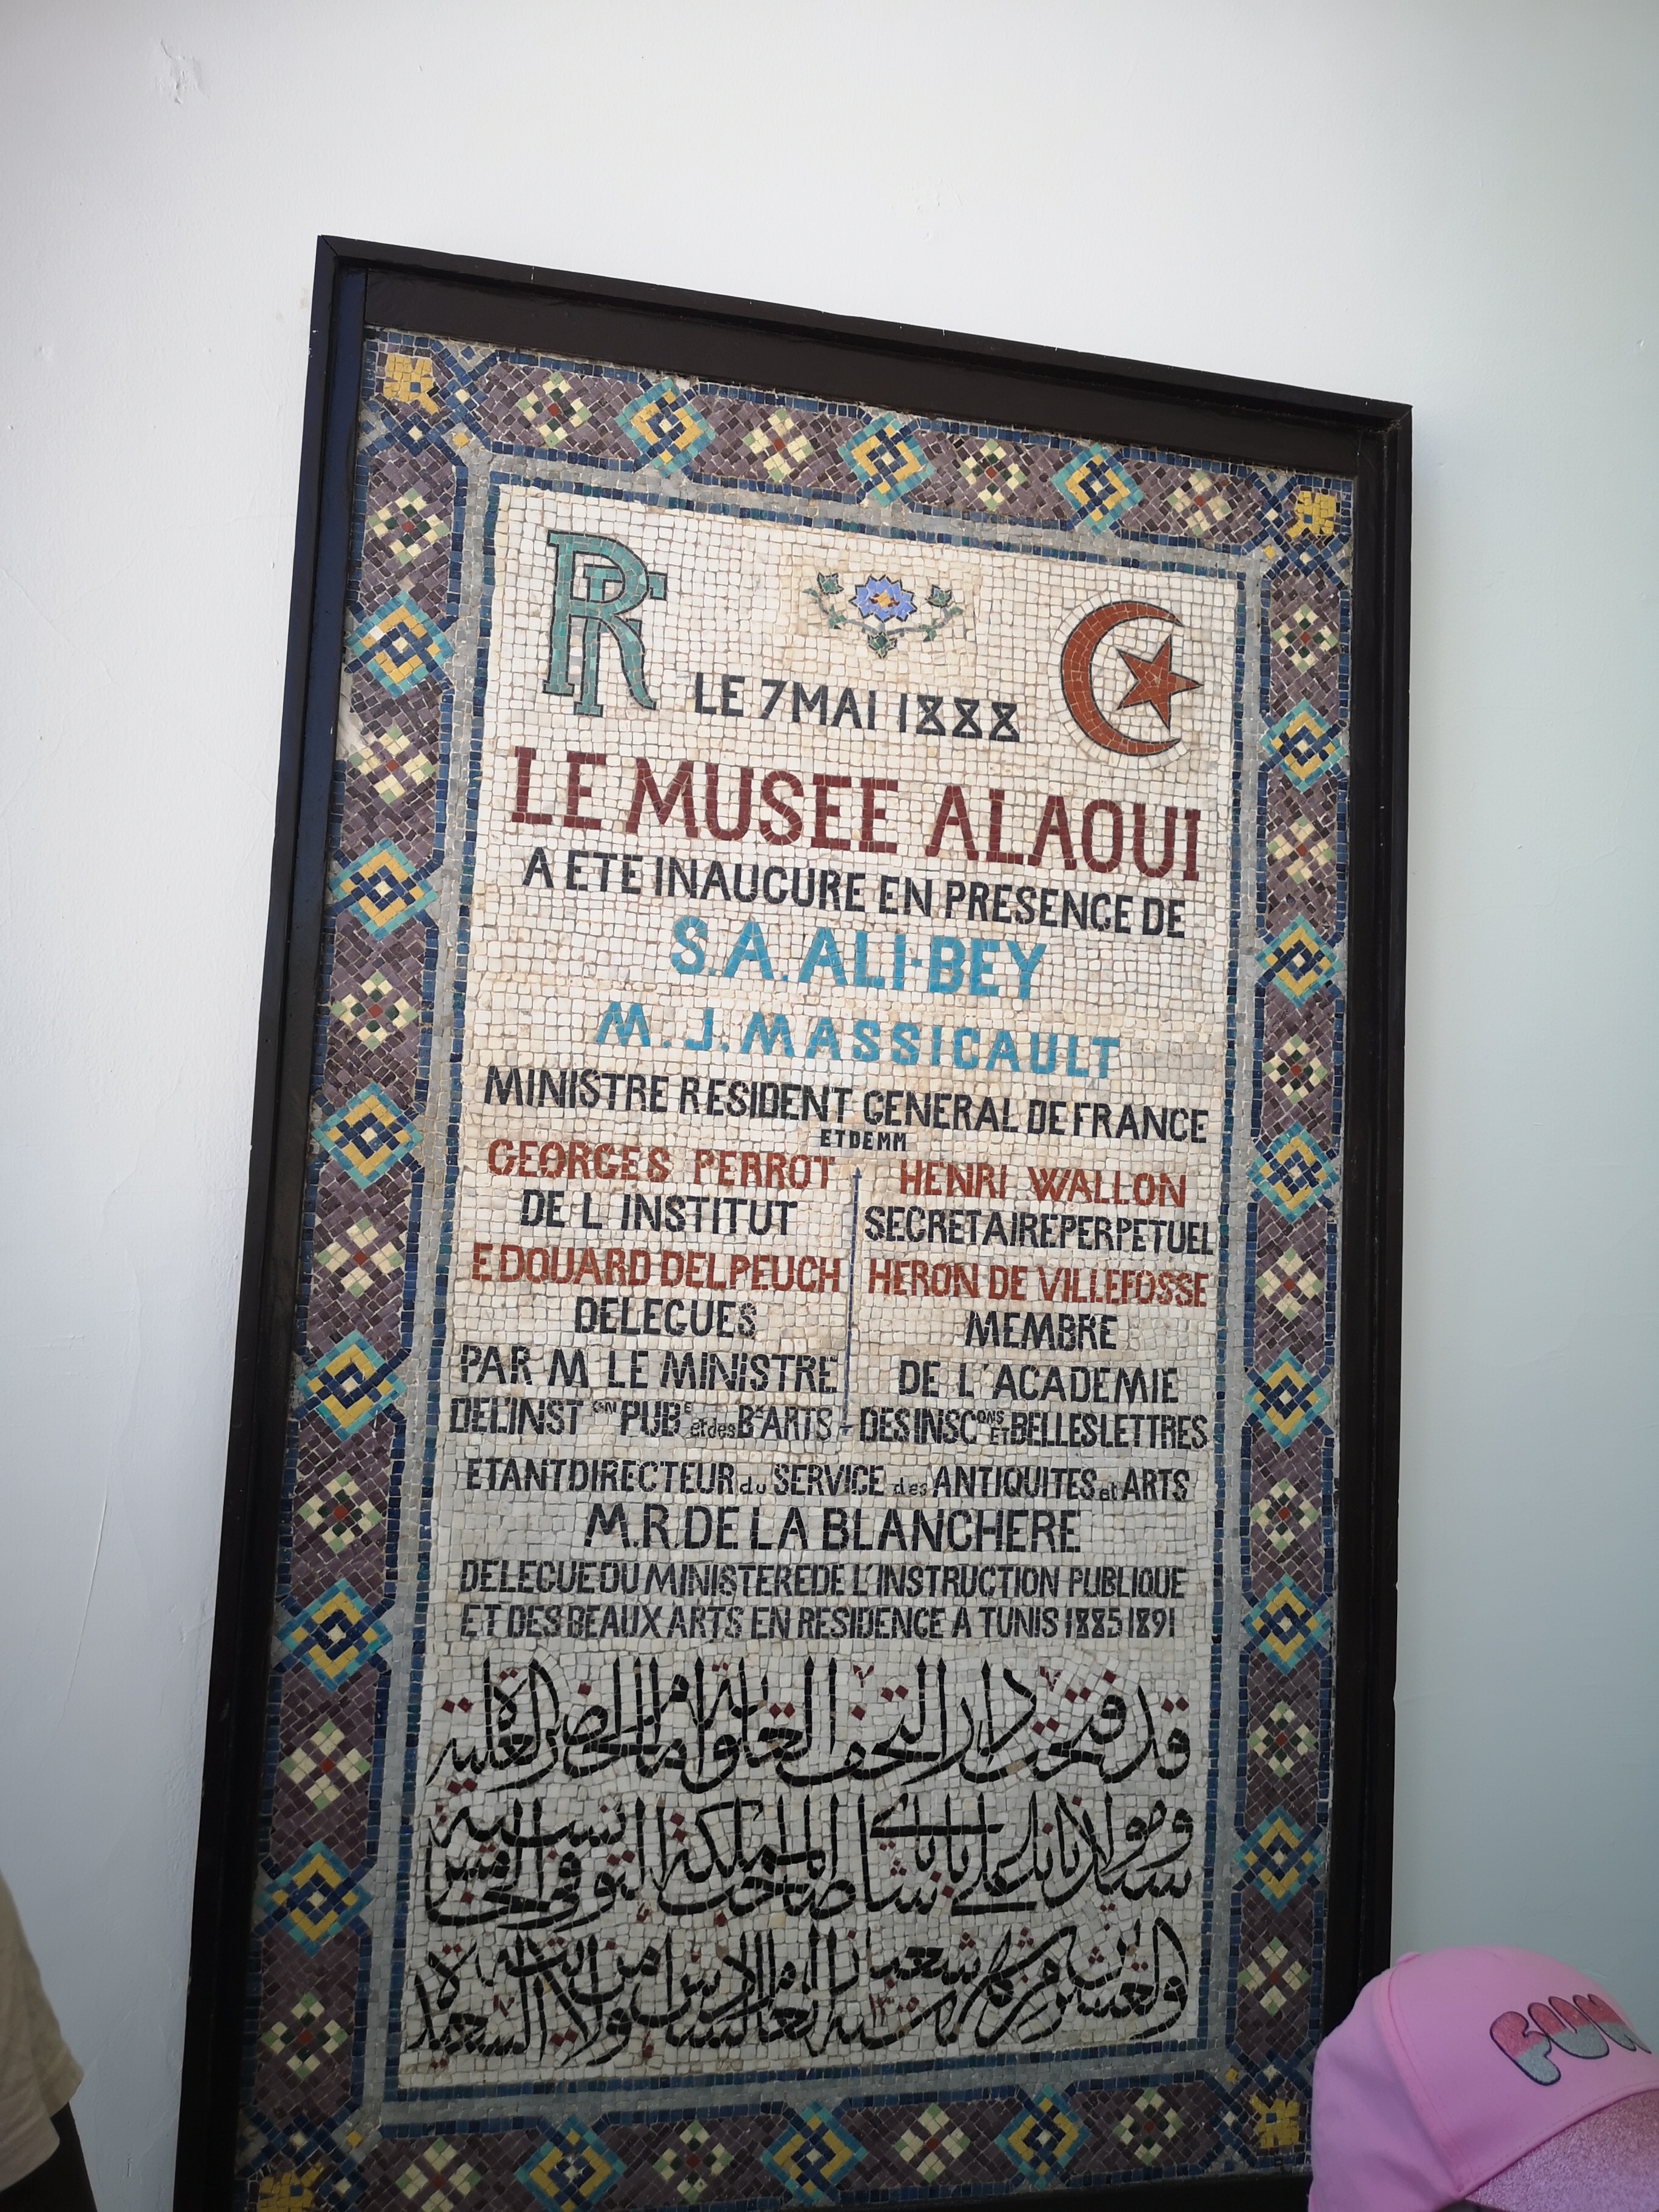 RF
LE 7 MAI 1888
LE MUSEE ALAOUI
A ETE INAUGURE EN PRESENCE DE
S.A. ALI-BEY
M. J. MASSICAULT
MINISTRE RESIDENT GENERAL DE FRANCE
ET DE MM
GEORGES PERROT
DE L INSTITUT
EDOUARD DELPEUCH
DELEGUES
PAR M LE MINISTRE
DE L'INST ON PUB E et des Bx ARTS
HENRI WALLON
SECRETAIRE PERPETUEL
HERON DE VILLEFOSSE
MEMBRE
DE L'ACADEMIE
DES INSC ONS ET BELLES LETTRES
ETANT DIRECTEUR du SERVICE des ANTIQUITES et ARTS
M.R. DE LA BLANCHERE
DELEGUE DU MINISTERE DE L'INSTRUCTION PUBLIQUE
ET DES BEAUX ARTS EN RESIDENCE A TUNIS 1885 1891
قد فتحت دار التحف العلوية أمام الحضرة العلية
سيدنا ومولانا علي باشا باي صاحب المملكة التونسية
FUN